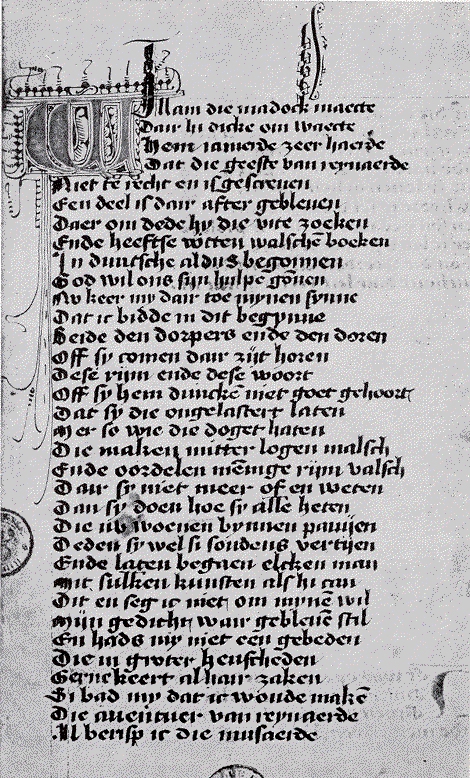 Willam die madock maecte
Dair hi dicke om waecte
Hem iamerde zeer haerde
Dat die geeste van reynaerde
Niet te recht en is gescreuen
Een deel is dair after gebleuen
Daer om dede hy die vite zoeken
Ende heeftse wtten walschē boeken
In duutsche aldus begonnen
God wil ons sijn hulpe gōnen
Nv keer my dair toe mynen synne
Dat ic bidde in dit begynne
Beide den dorpers ende den doren
Off sy comen dair zijt horen
Dese rijm ende dese woort
Off sy hem duncken niet goet gehoort
Dat sy die ongelastert laten
Mer so wie die doget haten
Die maken mitter logen malsch
Ende oordelen mēnige rijm valsch
Dair sy niet meer of en weten
Dan sy doen hoe sy alle heten
Die nv woenen bynnen pauijen
Deden sy wel si soudens vertyen
Ende laten begaen elcken man
Mit sulken kunsten als hi can
Dit en seg ic niet om mynē wil
Mijn gedicht wair gebleuē stil
En hads my niet eēn gebeden
Die in groter heuscheden
Gerne keert al hair zaken
Si bad my dat ic woude makē
Die auentuer van reynaerde
Al berisp ic die musaerde